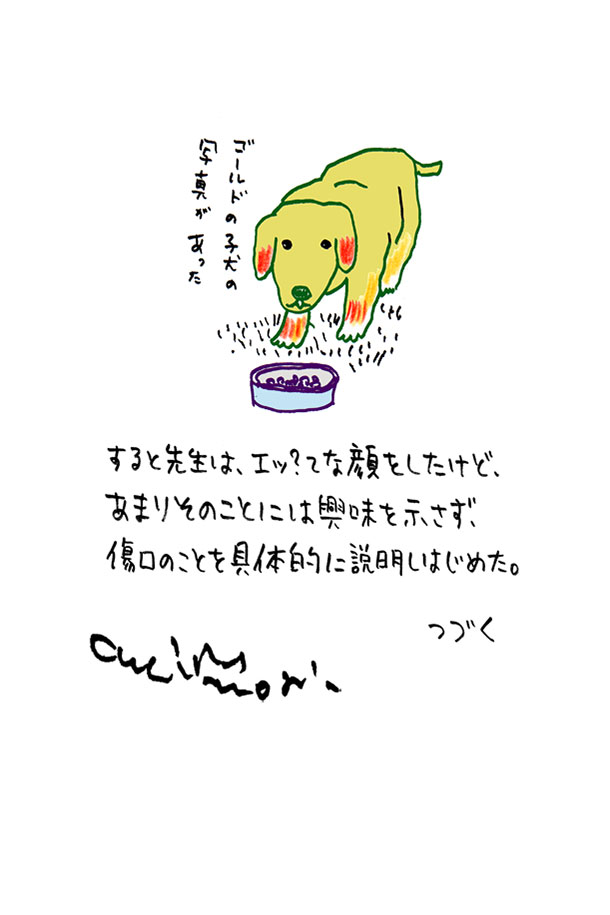 ゴールドの子犬の
写真があった
すると先生は、エッ?てな顔をしたけど、
あまりそのことには興味を示さず、
傷口のことを具体的に説明しはじめた。
つづく